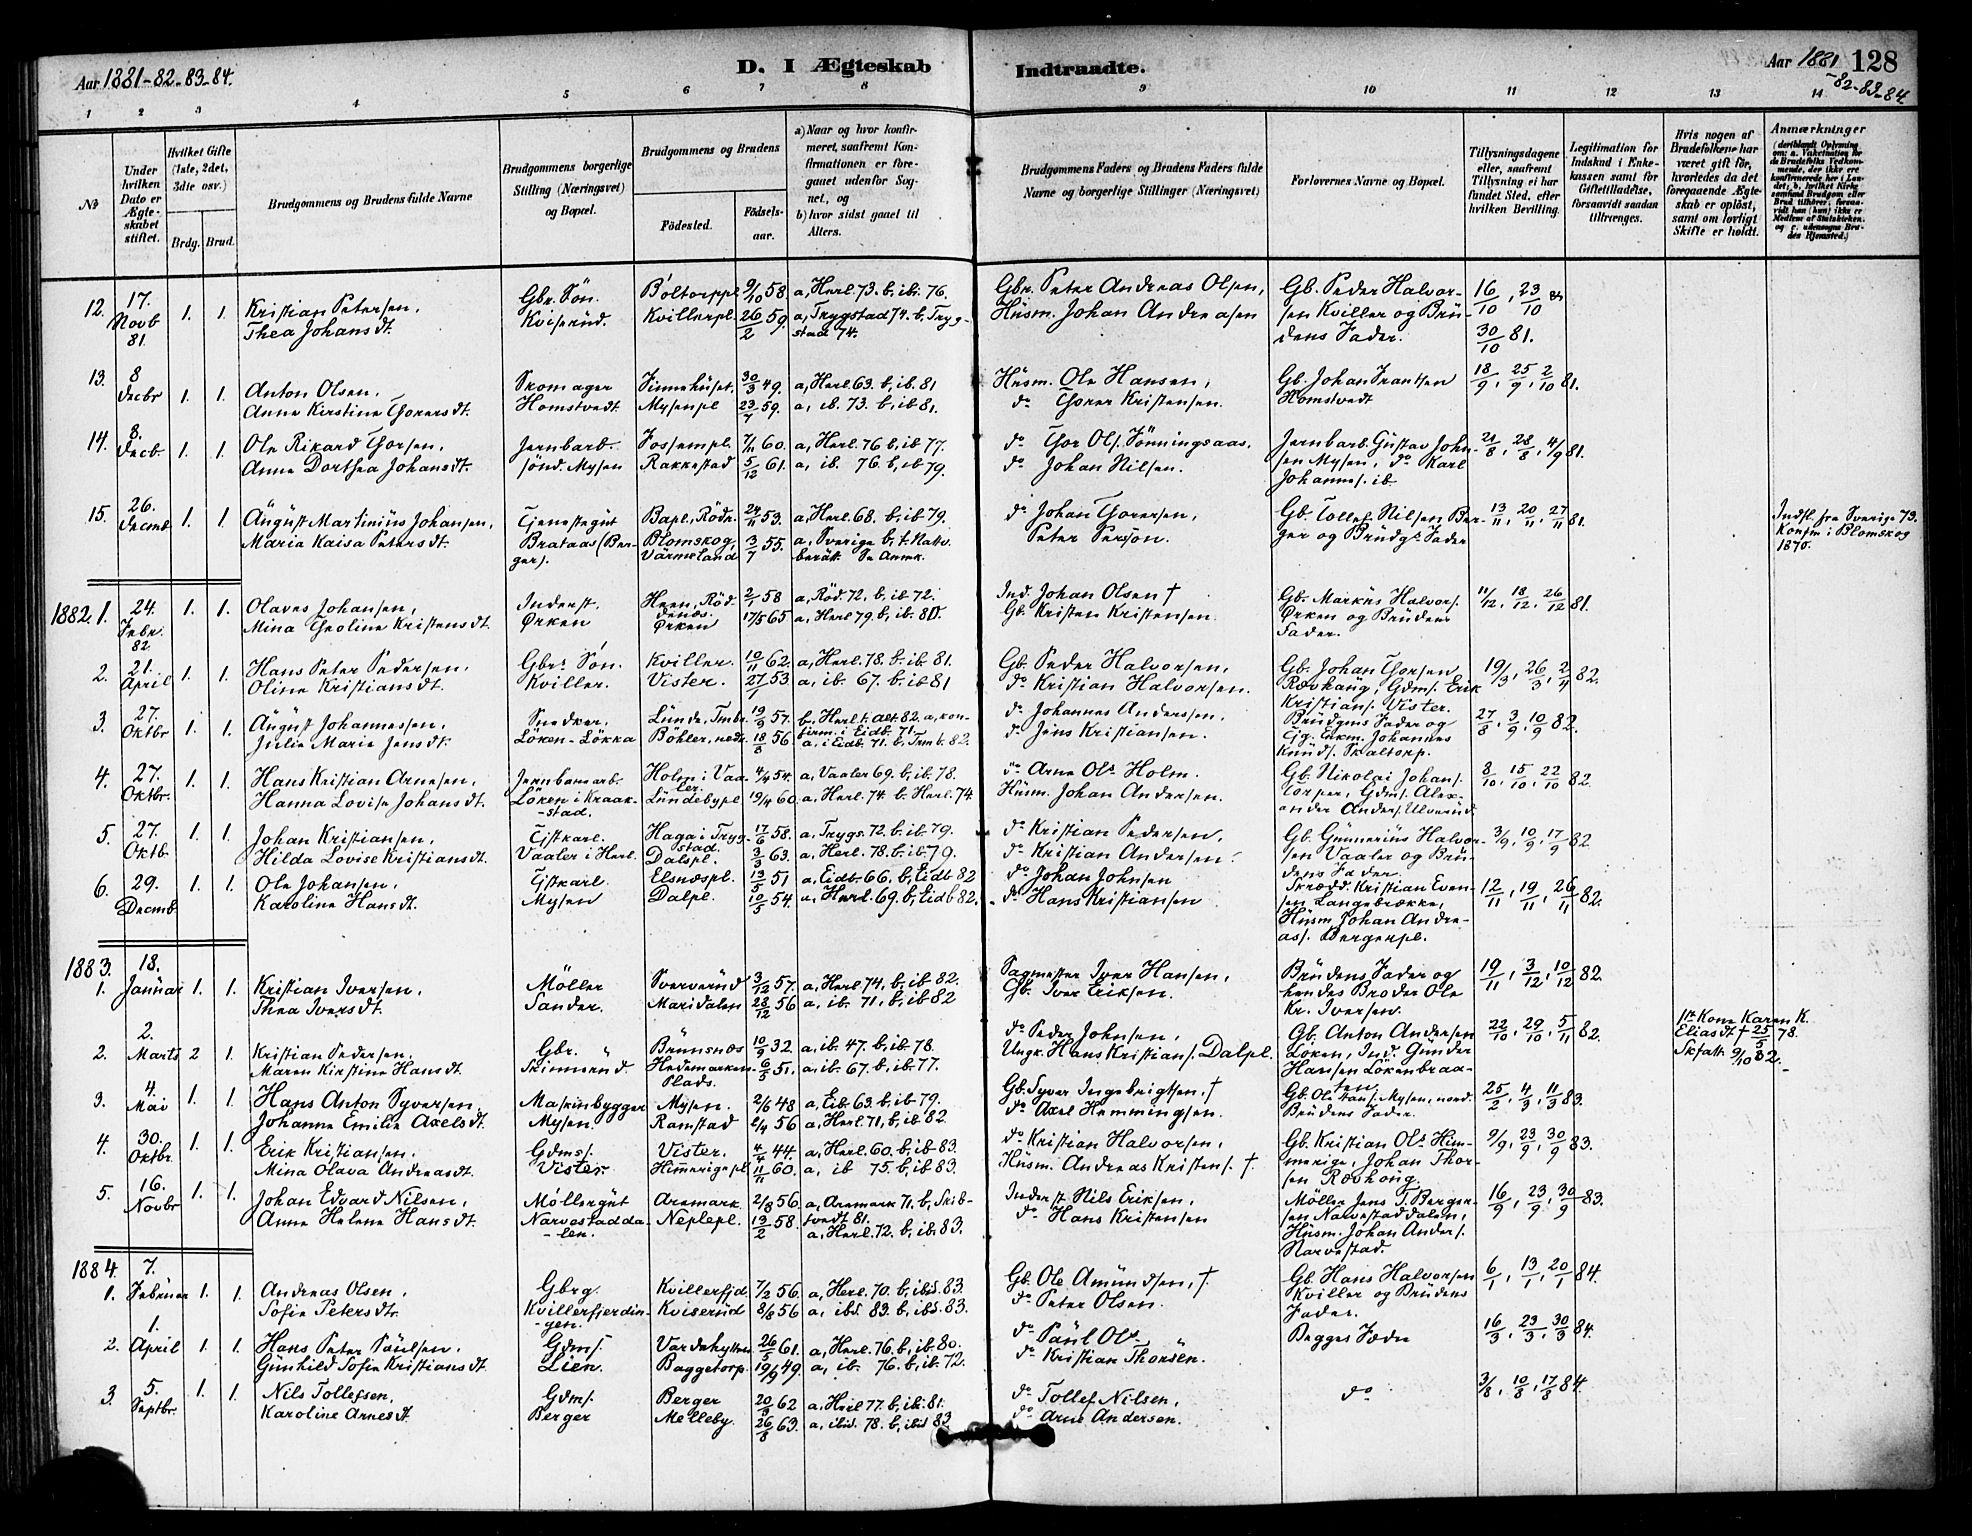 Aar 1881-82-83-84.
D. I Ægteskab Indtraadte.
Aar 1881 128
-82-83-84.
1 2 3 4 5 6 7 8 9 10 11 12 13 14
No
Under hvilken Dato er Ægteskabet stiftet.
Hvilket Gifte (1ste, 2det, 3die osv.)
Brdg. Brud.
Brudgommens og Brudens fulde Navne
Brudgommens borgerlige Stilling (Næringsvei) og Bopæl.
Brudgommens og Brudens
Fødested. Fødselsaar.
a) Naar og hvor konfirmeret, saafremt Konfirmationen er foregaaet udenfor Sognet, og
b) hvor sidst gaaet til Alters.
Brudgommens Faders og Brudens Faders fulde Navne og borgerlige Stillinger (Næringsvei)
Forlovernes Navne og Bopæl.
Tillysningsdagene eller, saafremt Tillysning ei har fundet Sted, efter hvilken Bevilling.
Legitimation for Indskud i Enkekassen samt for Giftetilladelse, forsaavidt saadan tiltrænges.
Hvis nogen af Brudefolkene har været gift før, hvorledes da det foregaaende Ægteskab er opløst, samt om lovligt Skifte er holdt.
Anmærkninger
12. 17. Novb 81. 1. 1. Kristian Petersen, Gbr. Søn. Böltorppl 9/10 58. a, Herl. 73. b. ib. 76. Gbr. Peter Andreas Olsen, Gb. Peder Halvor- 16/10, 23/10
Thea Johansdt. Kviserud. Kvillerpl. 26/2 59. a, Trygstad 74. b, Trygstad 74. Husm. Johan Andreasen sen Kviller og Brudens Fader. 30/10 81.
13. 8 Decbr 1. 1. Anton Olsen, Skomager Finnehuset. 30/3 49. a, Herl. 63. b, ib. 81 Husm. Ole Hansen, Gb. Johan Frantsen 18/9, 25/9, 2/10 81.
Anne Kirstine Thorersdt. Homstvedt. Mysenpl 23/7 59. a, ib. 73. b, ib 81. do Thorer Kristensen. Homstvedt
14. 8. Decb. 1. 1. Ole Rikard Thorsen, Jernbarb. Fossempl. 7/11 60. a, Herl. 76 b, ib 77. do Thor Ols. Sönningsaas. Jernbarb. Gustav John- 21/8, 28/8, 4/9 81.
Anne Dorthea Johansdt. sønd. Mysen Rakkestad 5/12 61. a, ib. 76. b, ib 79. do Johan Nilsen. sen Mysen, do Karl Johannes. ib.
15. 26. Decmb. 1. 1. August Martinius Johansen, Tjenestegut Bapl., Rödn. 24/11 53. a, Herl. 68. b, ib 79. do Johan Thorersen, Gb. Tollef Nilsen Ber- 13/11, 20/11, 27/11 81. Indfl. fra Sverige 73.
Maria Kaisa Petersdt. Brataas (Berger). Blomskog, Värmeland 3/7 55. a, Sverige b, t. Nattv. berätt. Se Anmk. Peter Persson. ger og Brudgs Fader Konfm. i Blomskog 1870.
1882. 1. 24. Febr. 82. 1. 1. Olaves Johansen, Inderst. Heen, Rödenæs. 2/1 58 a, Röd 72. b, ib 72. Ind. Johan Olsen † Gb. Markus Halvors. 11/12, 18/12, 26/12 81.
Mina Theoline Kristensdt. Ørken Ørken 17/5 65 a, Herl 79. b, ib. 80. Gb. Kristen Kristensen. Ørken og Brudens Fader.
2. 21. April 1. 1. Hans Peter Pedersen, Gbrs Søn. Kviller. 10/11 62. a, Herl. 78. b. ib. 81. Gb. Peder Halvorsen, Gb. Johan Thorsen 19/3, 26/3, 2/4 82.
Oline Kristiansdt. Kviller. Vister. 27/1 53 a, ib. 67. b, ib 81 do Kristian Halvorsen. Rævhaug, Gdms. Erik Kristians. Vister.
3. 27. Oktbr 1. 1. August Johannessen, Snedker. Lunde, Tmbr. 19/9 57. b, Herl. t. alt. 82. a, konfirm. i Eidb. 71. do Johannes Anderssen, Brudgms Fader og 27/8, 3/9, 10/9 82.
Julie Marie Jensdt. Löken-Lökka Böhler, nedr. 18/8 56 a, i Eidb. 71. b, Tmb. 82. do Jens Kristiansen. Johannes Knuds. Skaltorp.
4. 27. Oktbr. 1. 1. Hans Kristian Arnesen, Jernbanearb. Holm i Vaaler. 4/4 54. a, Vaaler 69. b, ib. 78. do Arne Ols. Holm. Gb. Nikolai Johans. 8/10, 15/10, 22/10 82.
Hanna Lovise Johansdt. Löken i Kraakstad. Lundebypl 19/4 60. a, Herl. 74. b. Herl. 74. Husm. Johan Andersen. Torper, Gdms. Alexander Anders. Ulverud.
5. 27. Oktb. 1. 1. Johan Kristiansen, Tjstkarl. Haga i Trygstad. 17/6 58. a, Trygs. 72. b, ib 79. do Kristian Pedersen, Gb. Gunnerius Halvor- 3/9, 10/9, 17/9 82.
Hilda Lovise Kristiansdt. Vaaler i Herl. Dalspl. 3/3 63. a, Herl. 78. b. ib. 79. do Kristian Andersen. sen Vaaler og Brudens Fader.
6. 29. Decmb. 1. 1. Ole Johansen, Tjstkarl. Elsnæspl. 13/5 51 a, Eidb. 66. b, Eidb 82 do Johan Johnsen Skrædd. Kristian Even- 12/11, 19/11, 26/11 82.
Karoline Hansdt. Mysen Dalpl. 10/5 54. a, Herl. 69. b, Eidb 82. do Hans Kristiansen sen Langebrække, Husm. Johan Andreas. Bergerpl.
1883. 1. 18. Januar 1. 1. Kristian Iversen, Möller Sververud 3/12 57. a, Herl 74, b, ib 82. Sagmester Iver Hansen, Brudens Fader og 19/11, 3/12, 10/12 82.
Thea Iversdt. Sander. Maridalen 28/12 56 a, ib. 71, b, ib 82 Gb. Iver Eriksen. hendes Broder Ole Kr. Iversen.
2. 2. Marts 2 1. Kristian Pedersen, Gbr. Brunsnæs 10/9 32. a, ib. 47. b, ib 78. do Peder Johnsen, Gb. Anton Andersen 22/10, 29/10, 5/11 82. 1ste Kone Karen K. Eliasdt † 25/5 78.
Maren Kirstine Hansdt. Skinnerud Hedemarkens Plads. 6/5 51. a, ib 67. b, ib. 77. Ungk. Hans Kristians. Dalpl. Löken, Ind. Gunder Hansen Lökenbraaten. Skfatt. 9/10 82.
3. 4. Mai 1. 1. Hans Anton Syversen Maskinbygger Mysen. 2/6 48 a, Eib. 63. b, ib 79. Gb. Syver Ingebrigtsen, † Gb. Ole Hans. Mysen, nord. 25/2, 4/3, 11/3 83.
Johanne Emilie Axelsdt. Mysen. Ramstad 2/4 56 a, Herl. 71, b, ib 82. do Axel Hemmingsen. Brudens Fader.
4. 30. Oktbr. 1. 1. Erik Kristiansen, Gdms. Vister. 4/4 44. a, Herl. 60. b, ib 83. do Kristian Halvorsen, Gb. Kristian Ols. Him- 9/9, 23/9, 30/9 83.
Mina Olava Andreasdt. Vister Himerigepl 11/11 60. a, ib 75. b, ib 83. Husm. Andreas Kristens. †. merige, Johan Thorsen Rævhöng.
5. 16. Novbr 1. 1. Johan Edvard Nilsen, Möllergut Aremark. 2/8 56. a, Aremark 71. b, Skibtvedt 81. Inderst Nils Eriksen, Möller Jens T. Berger- 16/9, 23/9, 30/9 83.
Anne Helene Hansdt. Narvestaddalen. Neplepl. 19/2 58. a, Herl. 72. b, ib. 83. do Hans Kristensen sen Narvestaddalen, Husm. Johan Anders. Narvestad.
1884. 1. 7. Februar 1. 1. Andreas Olsen, Gbrg. Kvillerfjd. 7/2 56. a, Herl. 70. b, ibid. 83. Gb. Ole Amundsen, † Gb. Hans Halvorsen 6/1, 13/1, 20/1 84.
Sofie Petersdtr. Kvillerfjerdingen. Kviserud 8/8 56 a, ibd. 83. b, ibd. 83. do Peter Olsen. Kviller og Brudens Fader.
2. 1. April 1. 1. Hans Peter Paulsen, Gdms. Vardehytten 26/5 61. a, Herl. 76. b, ib. 80. do Paul Ols. Begges Fædre 16/3, 23/3, 30/3 84.
Gunhild Sofie Kristiansdt. Lien. Baggetorp. 19/9 49. a, ib. 76. b, ib. 72. do Kristian Thorsen.
3 5. Septbr. 1. 1. Nils Tollefsen, Gdms. Berger 20/3 62 a, Herl 77. b, ib. 81. do Tollef Nilsen, do 3/8, 10/8, 17/8 84.
Karoline Arnesdt. Berger Melleby. 26/8 63. a, ibid. 78. b, ibid 83 do Arne Andersen.